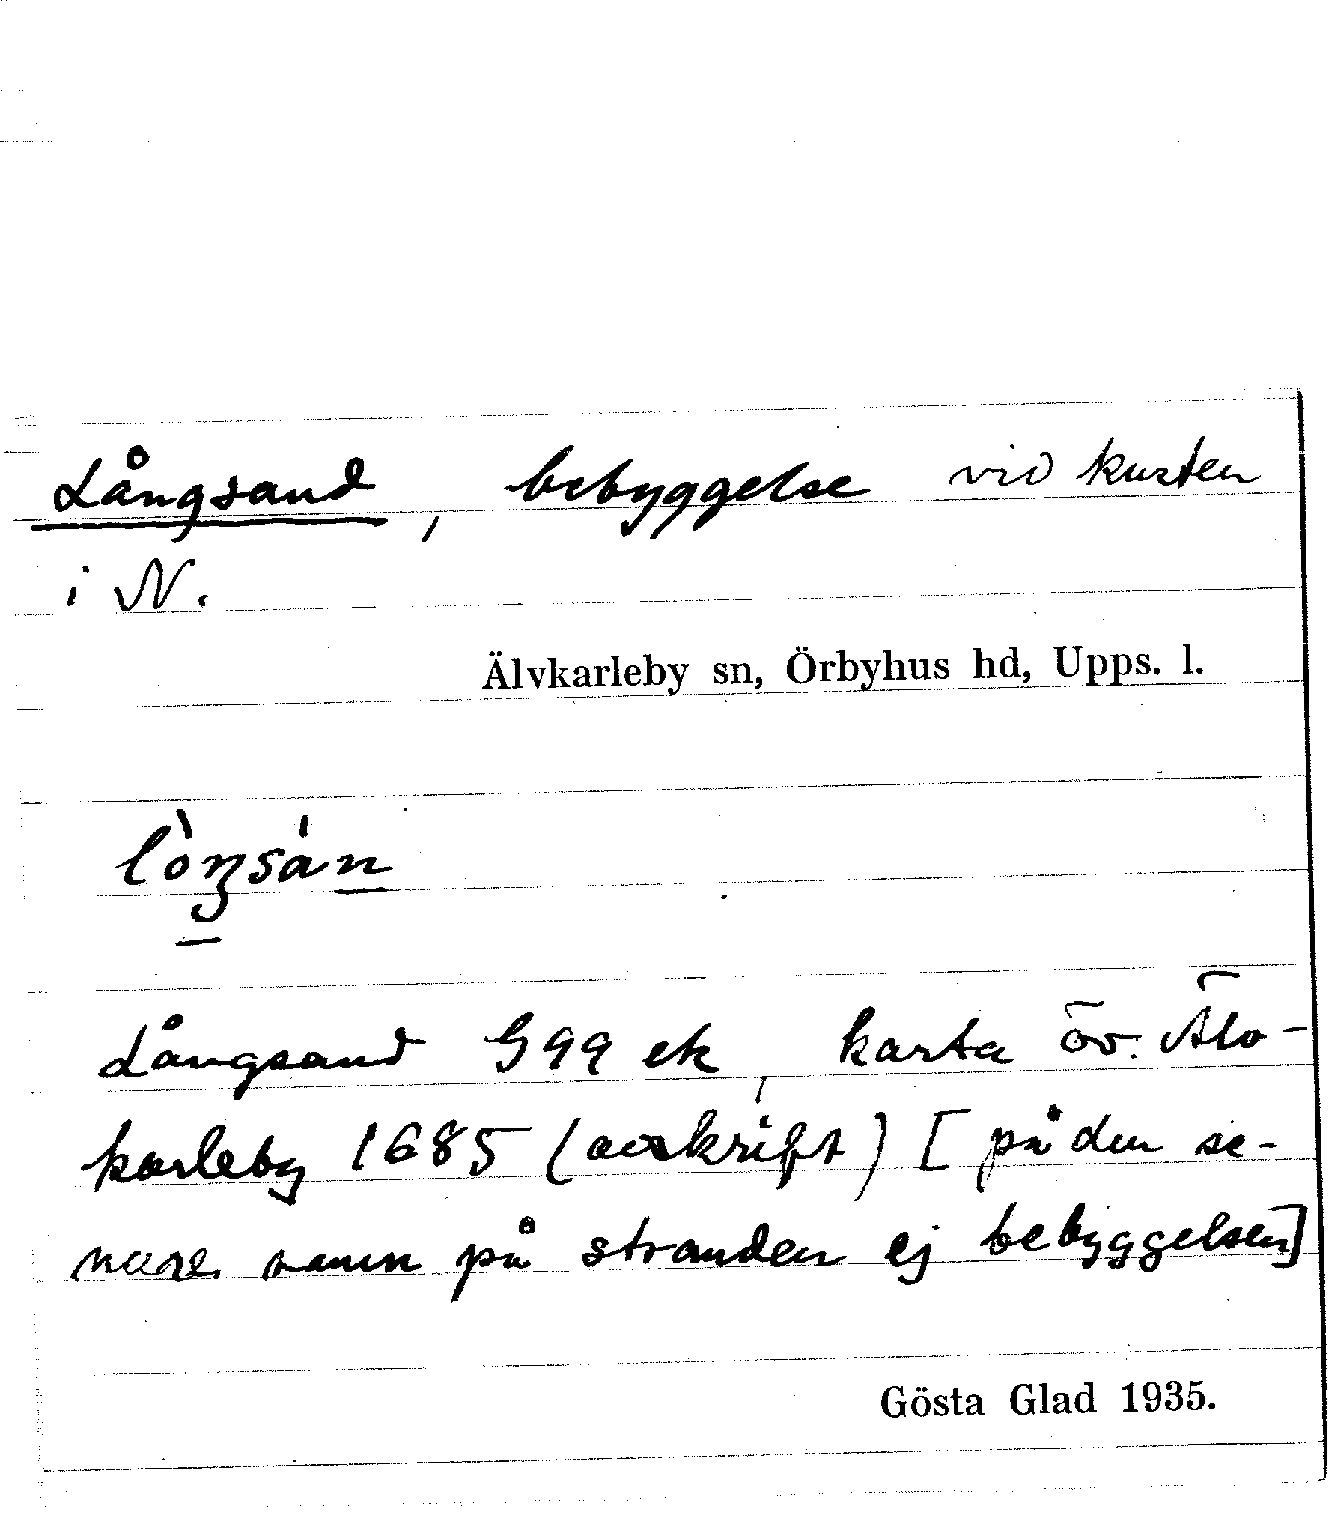 Långsand, bebyggelse vid kusten
i N.
Älvkarleby sn, Örbyhus hd, Upps. l.
lòŋsán
Långsand G 99 ek, karta öv. Älv-
karleby 1685 (avskrift) [på den se-
nare namn på stranden ej bebyggelsen]
Gösta Glad 1935.